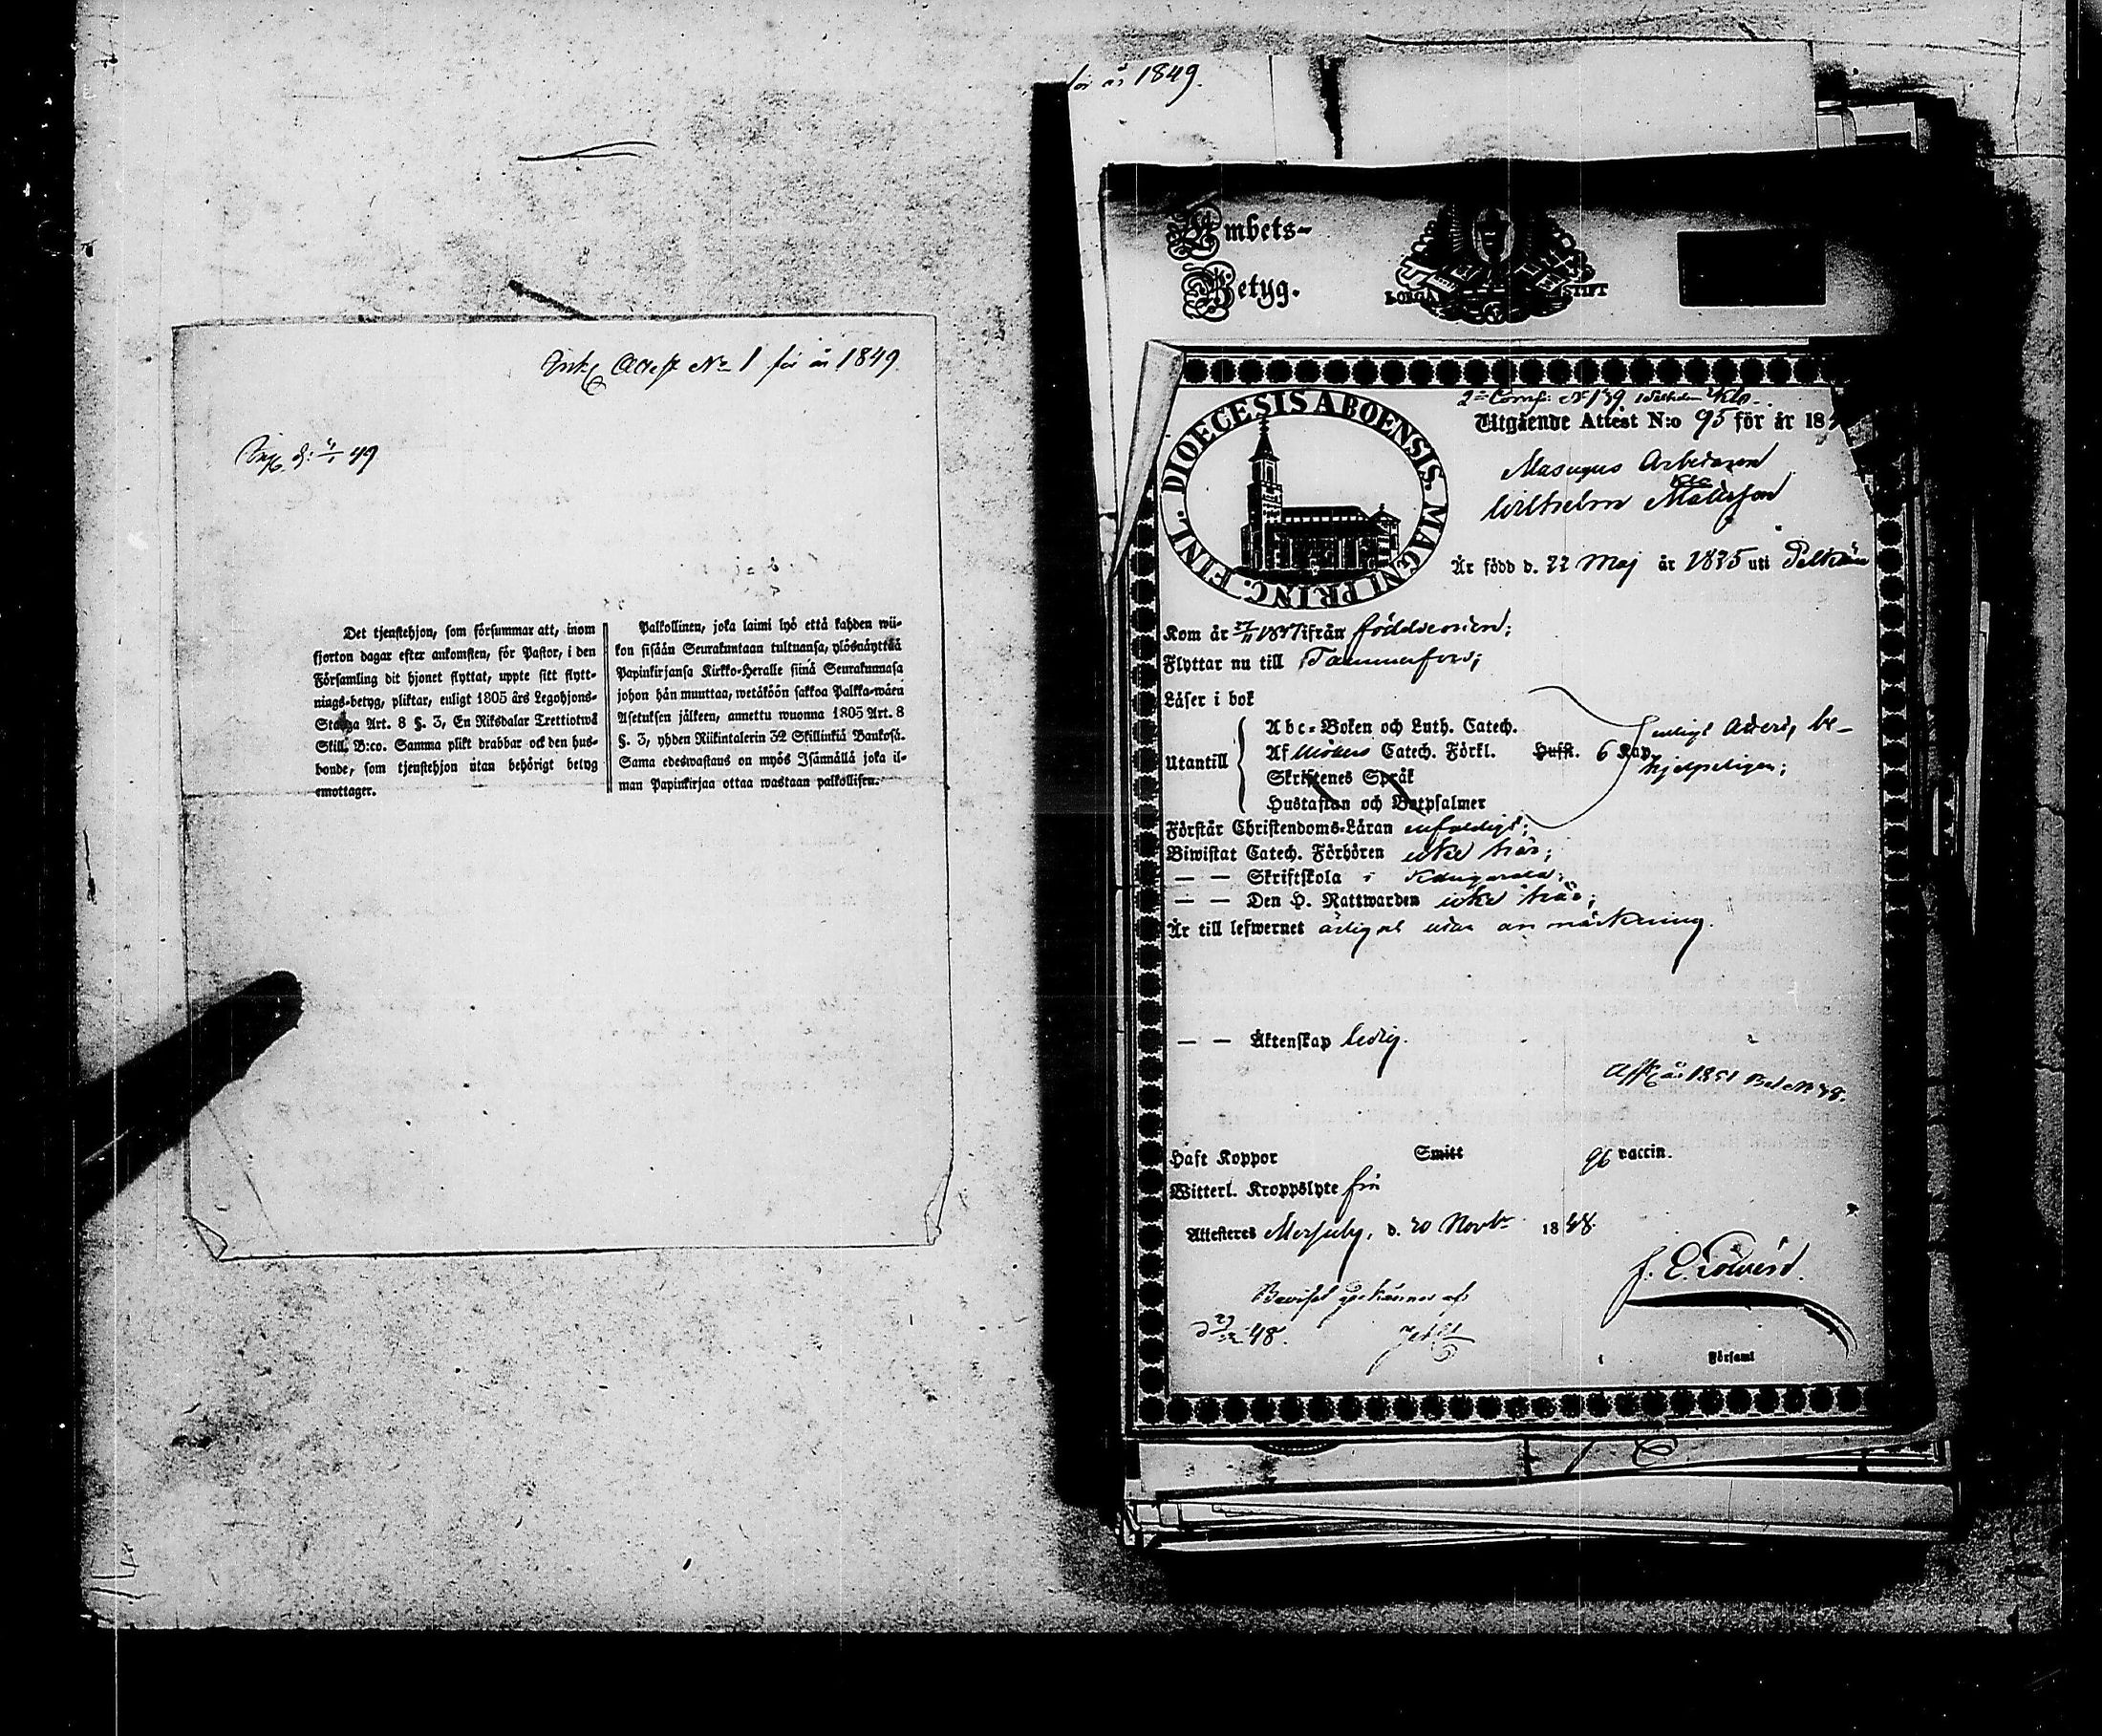 för år 1849.
Ink. Attest No 1 för år 1849.
49
Det tjenstehjon, som försummar att, inom
fjorton dagar efter ankomsten, för Pastor, i den
Församling dit hjonet flyttat, uppte sitt flytt-
nings-betyg, pliktar, enligt 1805 års Legohjons-
Stadga Art. 8 §. 3, En Riksdalar Trettiotwå
Skill. B:co. Samma plikt drabbar ock den hus-
bonde, som tjenstehjon utan behörigt betyg
emottager.
Palkollinen, joka laimi lyö että kahden wii-
kon sisään Seurakuntaan tultuansa, ylösnäyttää
Papinkirjansa Kirkko-Heralle siinä Seurakunnasa
johon hän muuttaa, wetäköön sakkoa Palkka-wäen
Asetuksen jälkeen, annettu wuonna 1805 Art. 8
§. 3, yhden Riikintalerin 32 Skillinkiä Bankosa.
Sama edeswastaus on myös Isännällä joka il-
man Papinkirjaa ottaa wastaan palkollisen.
Embets-
Betyg.
BORGÅ STIFT
DIOECESIS ABOENSIS. MAGNI PRINC. FINL.
No 139 Wilhelm
Utgående Attest N:o 95 för år 18
Masugns Arbetaren
Wilhelm Mattsson
Är född d. 22 Maj år 1825 uti Pelkäne
Kom år ifrån födelseorten;
Flyttar nu till Tammerfors;
Läser i bok
Utantill
Abc-Boken och Luth. Catech.
Af Möllers Catech. Förkl. Husst. 6 Kap.
Skriftenes Språk
Hustaflan och Botpsalmer
enligt Attest, be-
hjelpeligen;
Förstår Christendoms-Läran enfaldigt;
Biwistat Catech. Förhören icke här;
— — Skriftskola i Kangasala;
— — Den H. Nattwarden icke här;
Är till lefwernet ärligt utan anmärkning.
— — Äktenskap ledig.
år 1851
Haft Koppor Smitt vaccin.
Witterl. Kroppslyte fri
Attesteres d. 20 Novbr 1848.
Beviset
48.
Församl